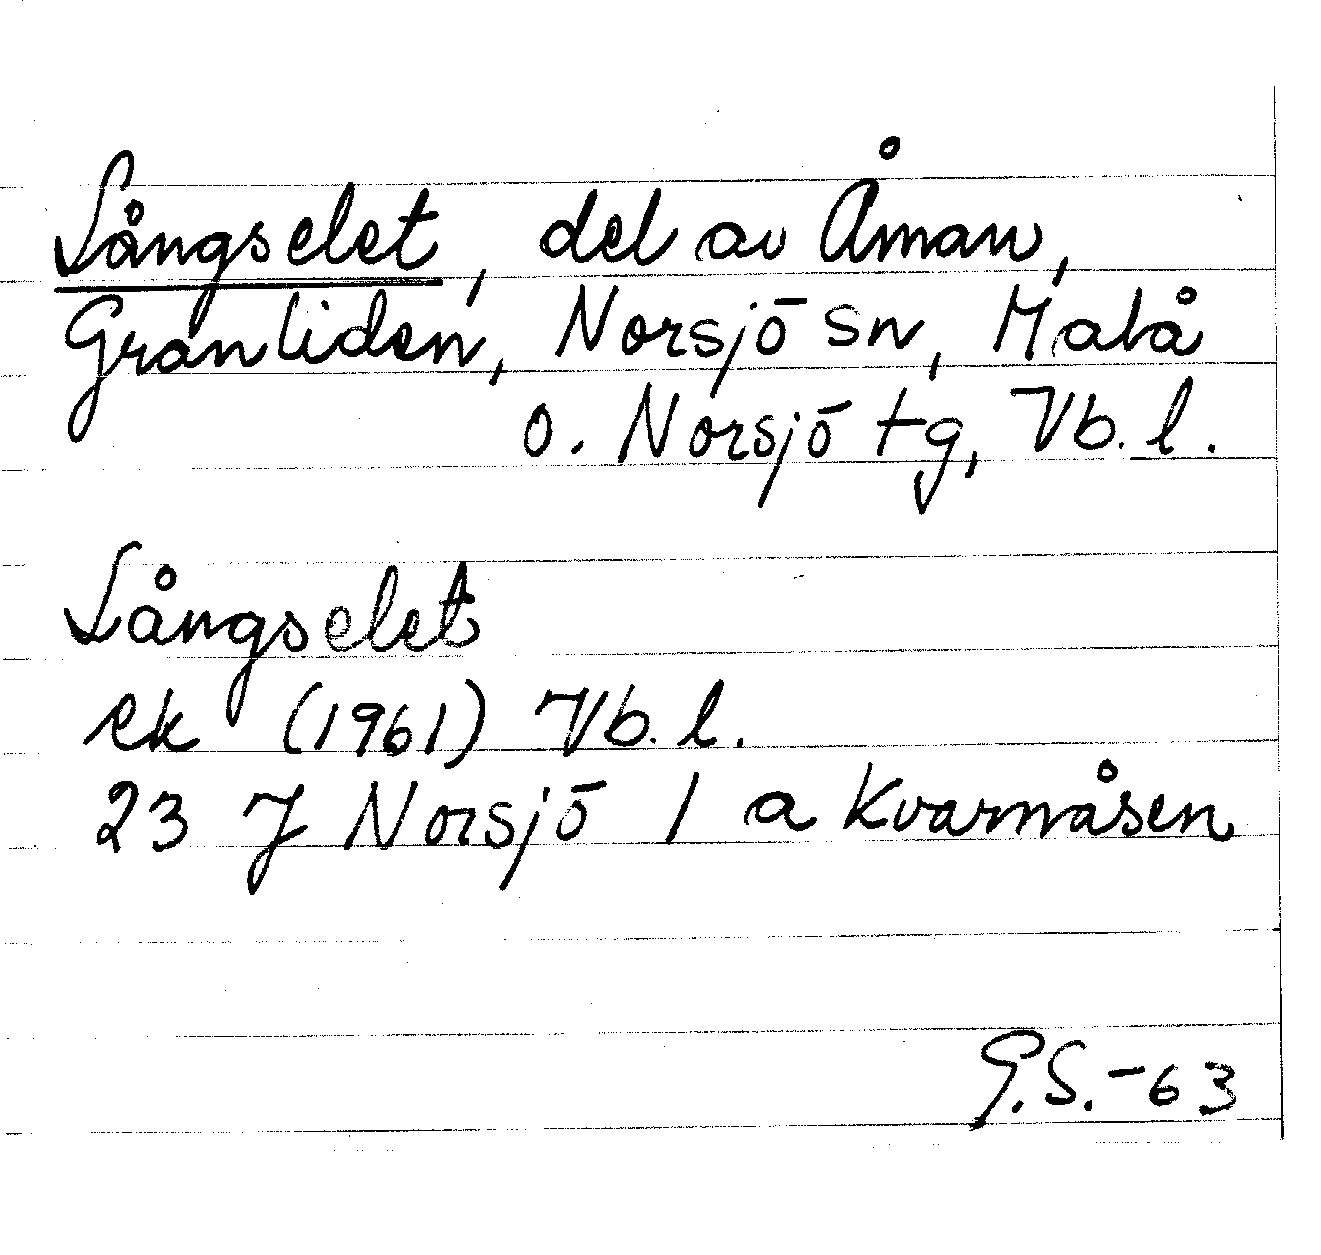 Långselet, del av Åman,
Granliden, Norsjö sn, Malå
o. Norsjö tg, Vb. l.
Långselet
ek (1961) Vb. l.
23 J Norsjö 1 a Kvarnåsen
G.S.-63